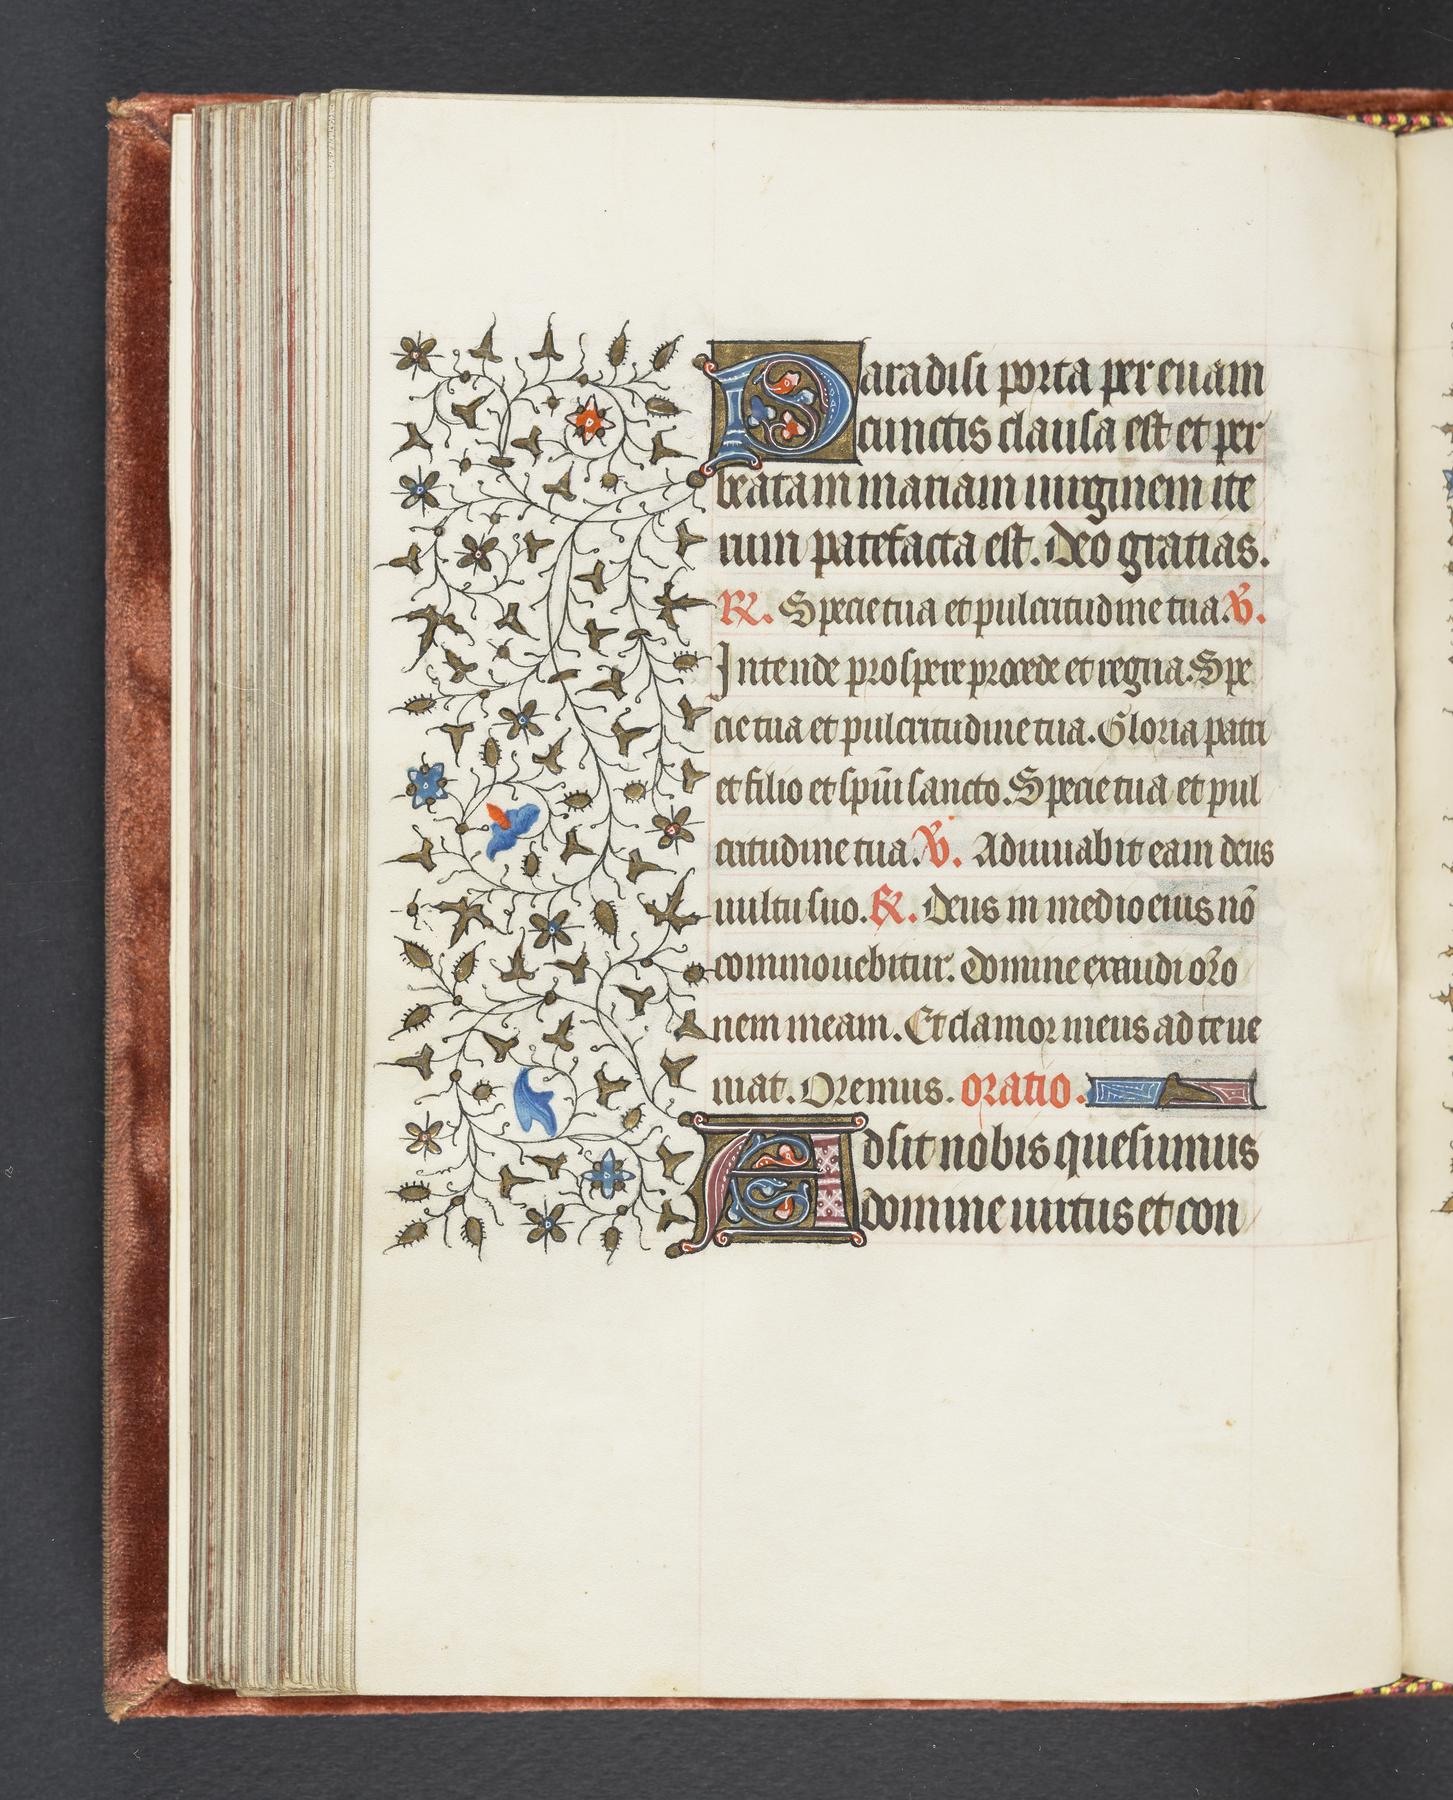 Paradisi porta per euam
cunctis clausa est et per
beatam mariam uirginem ite
rum patefacta est. Deo gratias.
R. Specie tua et pulcritudine tua. V.
Intende prospere procede et regna. Spe
cie tua et pulcritudine tua. Gloria patri
et filio et spūi sancto. Specie tua et pul
critudine tua. V. Adiuuabit eam deus
uultu suo. R. Deus in medio eius nō
commouebitur. Domine exaudi oro
nem meam. Et clamor meus ad te ue
niat. Oremus. oratio.
Adsit nobis quesumus
domine uirtus et con